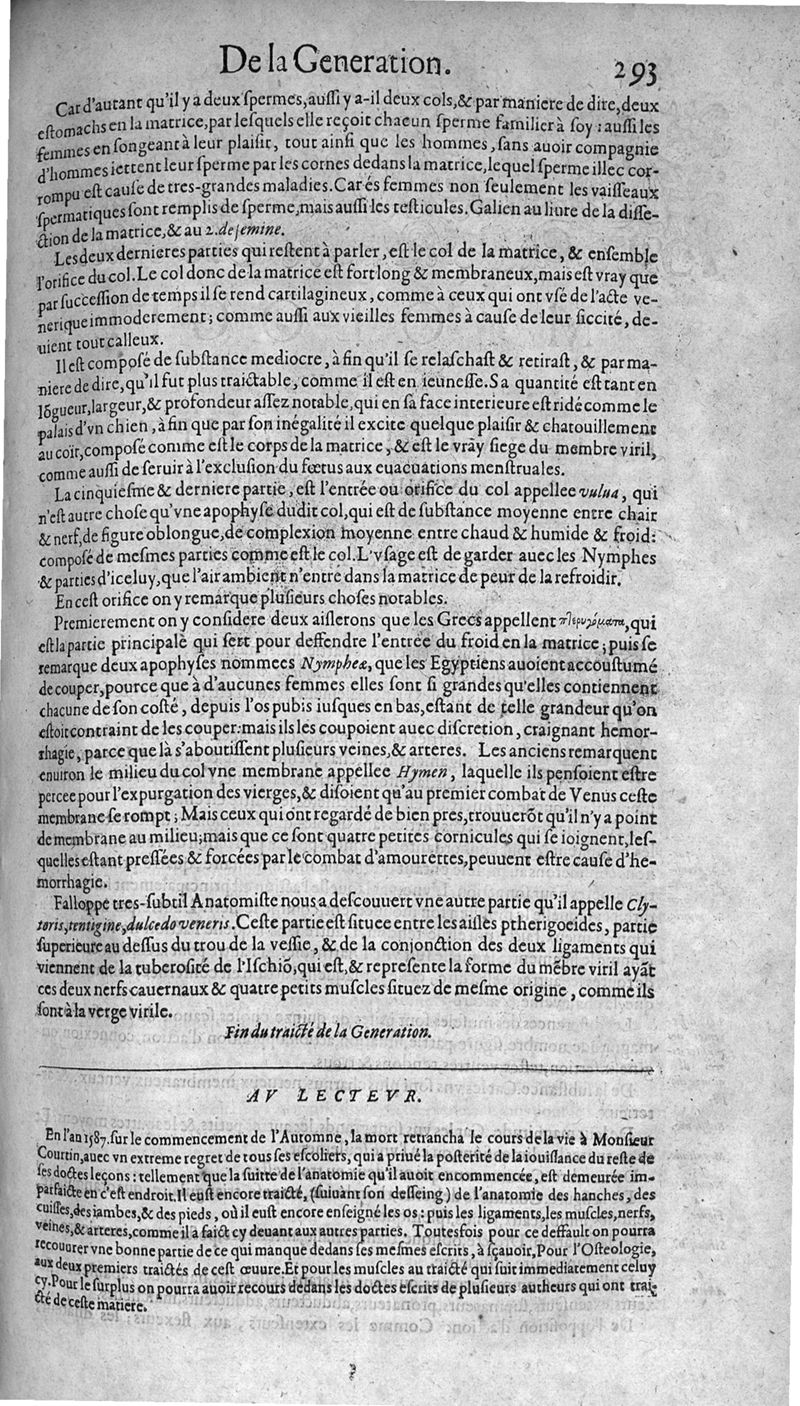 De la Generation. 293
Car d'autant qu'il y a deux spermes, aussi y a-il deux cols, & par maniere de dire, deux
estomachs en la matrice, par lesquels elle reçoit chacun sperme familier à soy : aussi les
femmes en songeant à leur plaisir, tout ainsi que les hommes, sans auoir compagnie
d'hommes iettent leur sperme par les cornes dedans la matrice, lequel sperme illec cor-
rompu est cause de tres-grandes maladies. Car és femmes non seulement les vaisseaux
spermatiques sont remplis de sperme, mais aussi les testicules. Galien au liure de la disse-
ction de la matrice, & au 2. de semine.
Les deux dernieres parties qui restent à parler, est le col de la matrice, & ensemble
l'orifice du col. Le col donc de la matrice est fort long & membraneux, mais est vray que
par succession de temps il se rend cartilagineux, comme à ceux qui ont vsé de l'acte ve-
nerique immoderement ; comme aussi aux vieilles femmes à cause de leur siccité, de-
uient tout calleux.
Il est composé de substance mediocre, à fin qu'il se relaschast & retirast, & par ma-
niere de dire, qu'il fut plus traictable, comme il est en ieunesse. Sa quantité est tant en
lõgueur, largeur, & profondeur assez notable, qui en sa face interieure est ridé comme le
palais d'vn chien, à fin que par son inégalité il excite quelque plaisir & chatouillement
au coir, composé comme est le corps de la matrice, & est le vray siege du membre viril,
comme aussi de seruir à l'exclusion du fœtus aux euacuations menstruales.
La cinquiesme & derniere partie, est l'entrée ou orifice du col appellee vulua, qui
n'est autre chose qu'vne apophyse dudit col, qui est de substance moyenne entre chair
& nerf, de figure oblongue, de complexion moyenne entre chaud & humide & froid :
composé de mesmes parties comme est le col. L'vsage est de garder auec les Nymphes
& parties d'iceluy, que l'air ambient n'entre dans la matrice de peur de la refroidir.
En cest orifice on y remarque plusieurs choses notables.
Premierement on y considere deux aislerons que les Grecs appellent qui
est la partie principale qui sert pour deffendre l'entrée du froid en la matrice ; puis se
remarque deux apophyses nommees Nympheæ, que les Egyptiens auoient accoustumé
de couper, pource que à d'aucunes femmes elles sont si grandes qu'elles contiennent
chacune de son costé, depuis l'os pubis iusques en bas, estant de telle grandeur qu'on
estoit contraint de les couper : mais ils les coupoient auec discretion, craignant hemor-
rhagie, parce que là s'aboutissent plusieurs veines, & arteres. Les anciens remarquent
enuiron le milieu du col vne membrane appellee Hymen, laquelle ils pensoient estre
percee pour l'expurgation des vierges, & disoient qu'au premier combat de Venus ceste
membrane se rompt ; Mais ceux qui ont regardé de bien pres, trouuerõt qu'il n'y a point
de membrane au milieu ; mais que ce sont quatre petites cornicules qui se ioignent, les-
quelles estant pressées & forcées par le combat d'amourettes, peuuent estre cause d'he-
morrhagie.
Falloppe tres-subtil Anatomiste nous a descouuert vne autre partie qu'il appelle Cly-
toris, tentigine, dulcedo veneris. Ceste partie est situee entre les aisles ptherigoeides, partie
superieure au dessus du trou de la vessie, & de la conjonction des deux ligaments qui
viennent de la tuberosité de l'Ischiõ, qui est, & represente la forme du mẽbre viril ayãt
ces deux nerfs cauernaux & quatre petits muscles situez de mesme origine, comme ils
sont à la verge virile.
Fin du traicté de la Generation.
AV LECTEVR.
En l'an 1587. sur le commencement de l'Automne, la mort retrancha le cours de la vie à Monsieur
Courtin, auec vn extreme regret de tous ses escoliers, qui a priué la posterité de la iouissance du reste de
ses doctes leçons : tellement que la suitte de l'anatomie qu'il auoit encommencée, est demeurée im-
parfaicte en c'est endroit. Il eust encore traicté, (suiuant son desseing) de l'anatomie des hanches, des
cuisses, des iambes, & des pieds, où il eust encore enseigné les os : puis les ligaments, les muscles, nerfs,
veines, & arteres, comme il a faict cy deuant aux autres parties. Toutesfois pour ce deffault on pourra
recouurer vne bonne partie de ce qui manque dedans ses mesmes escrits, à sçauoir, Pour l'Osteologie,
aux deux premiers traictés de cest œuure. Et pour les muscles au traicté qui suit immediatement celuy
cy. Pour le surplus on pourra auoir recours dedans les doctes escrits de plusieurs autheurs qui ont trai-
cté de ceste matiere.